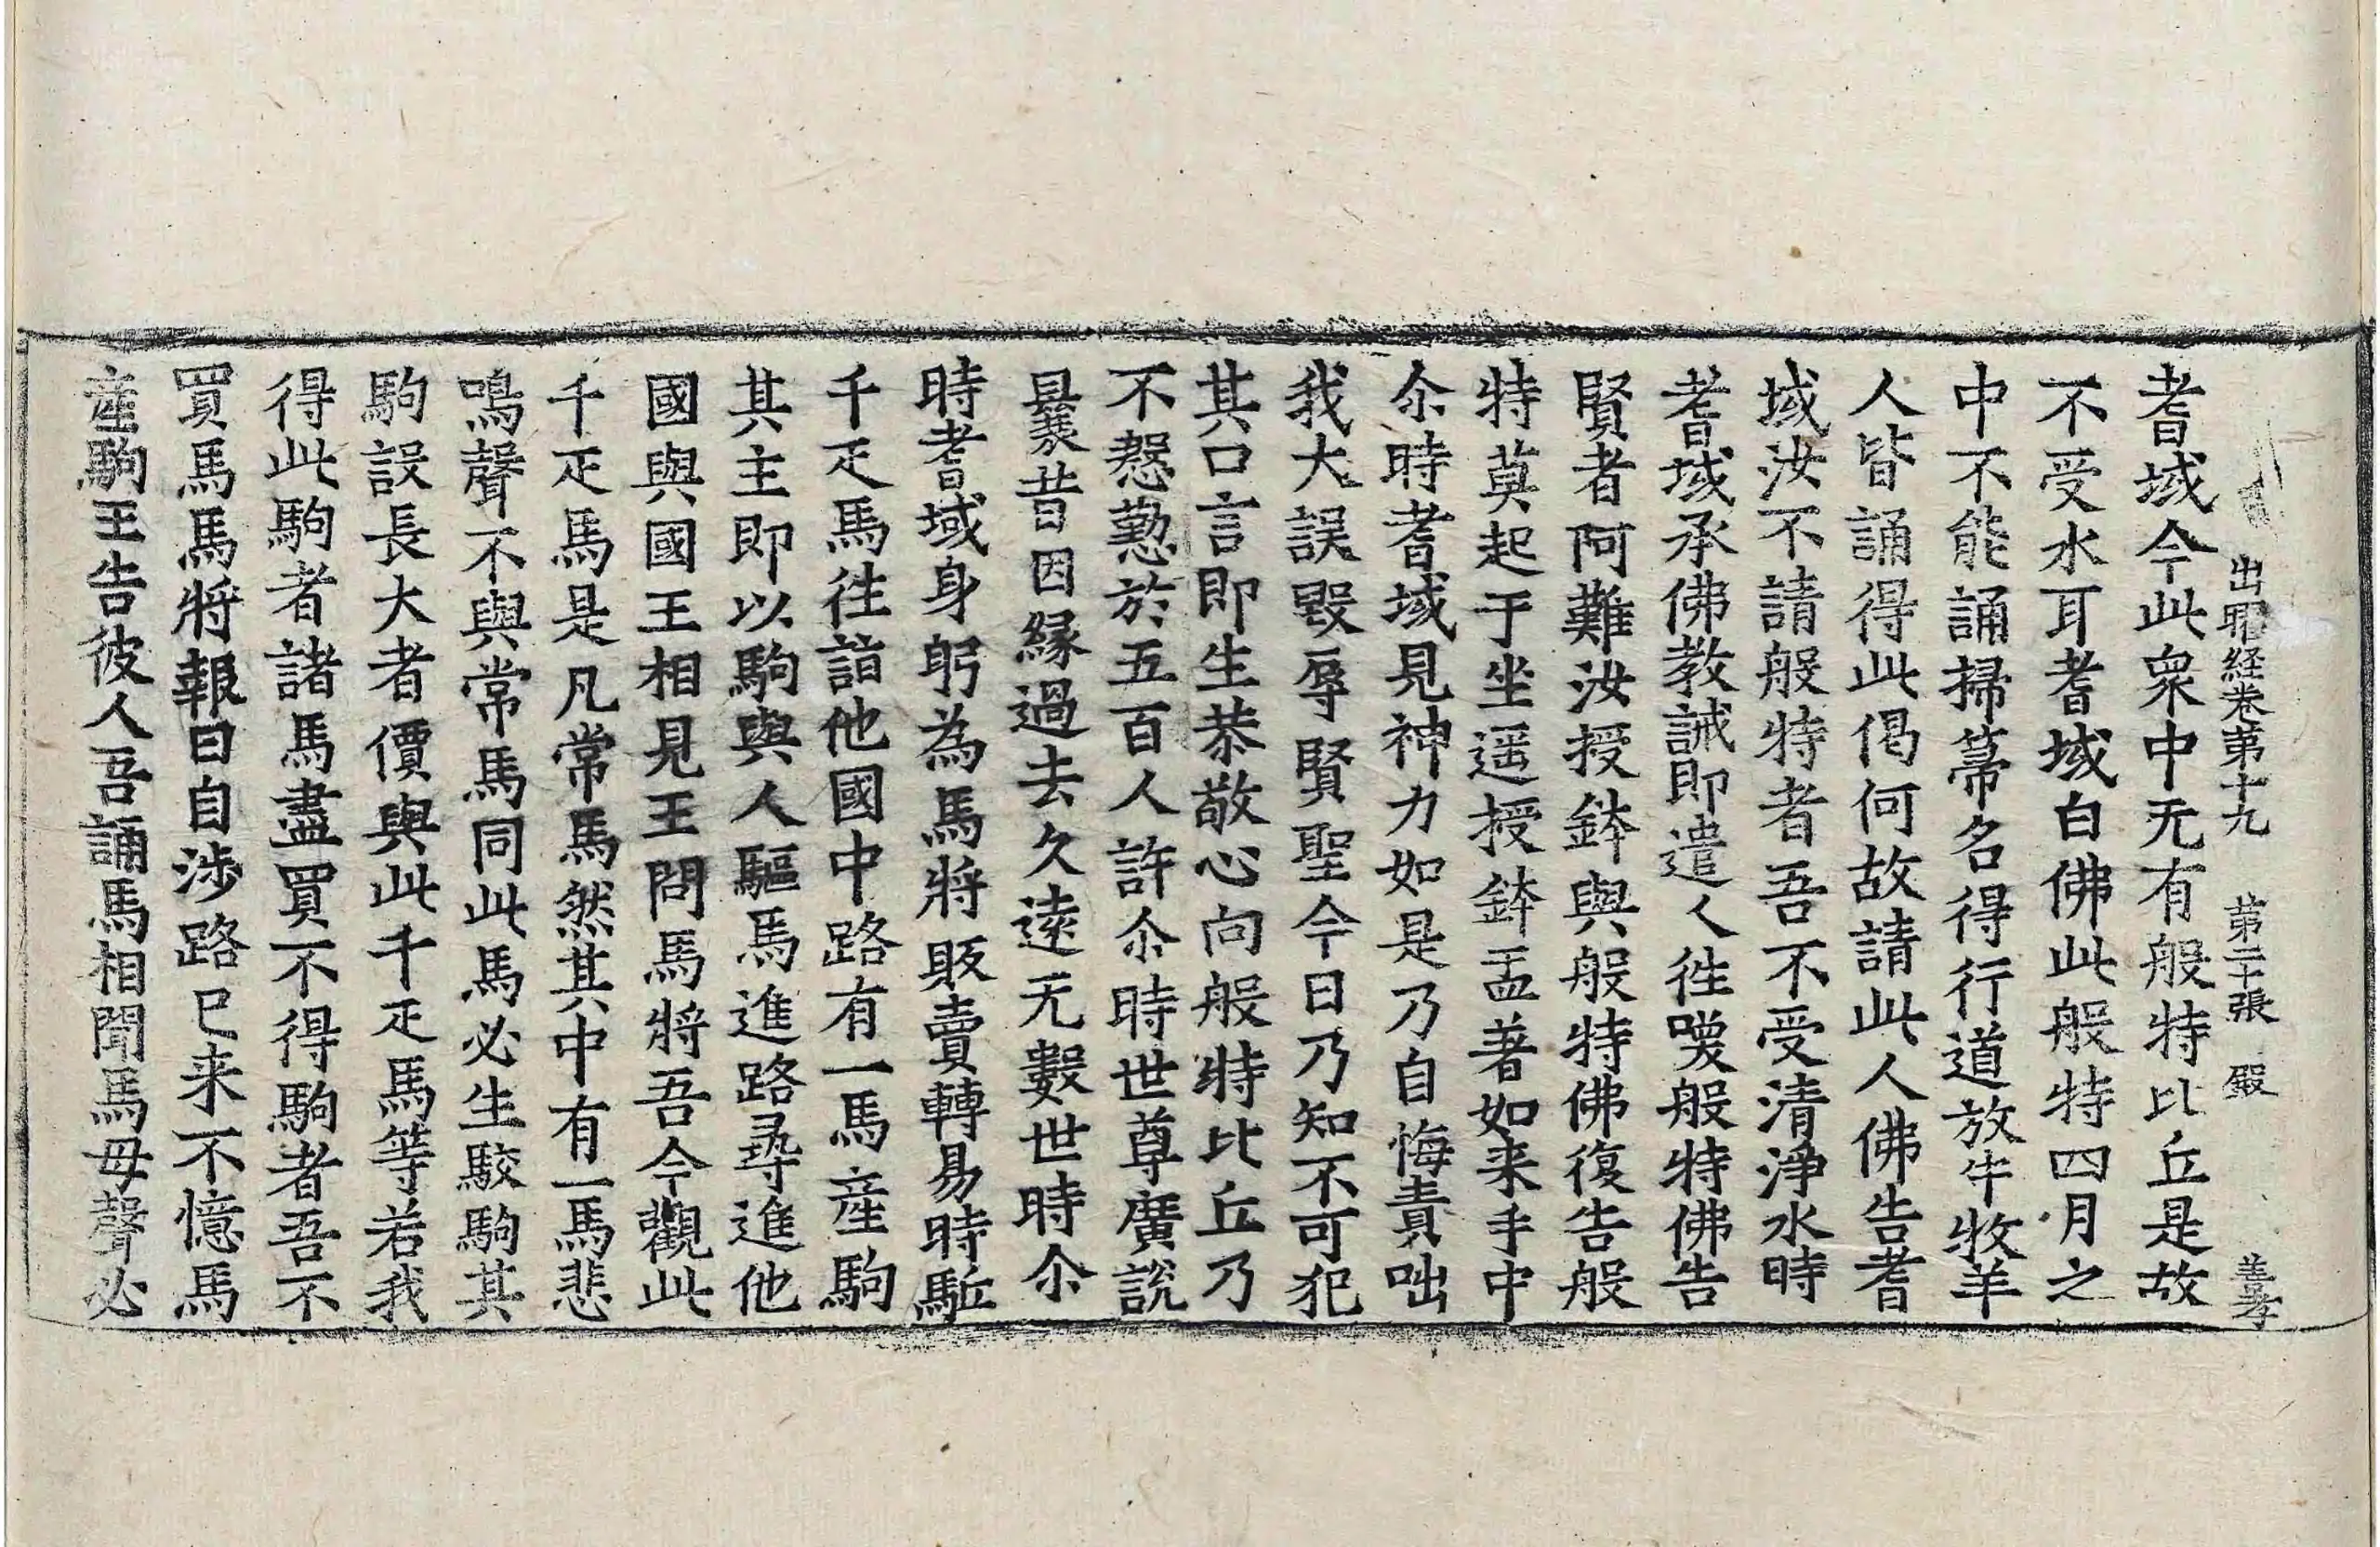 出曜経卷第十九 第二十張 殿 善孝
耆域今此衆中无有般特比丘是故
不受水耳耆域白佛此般特四月之
中不能誦掃箒名得行道放牛牧羊
人皆誦得此偈何故請此人佛告耆
域汝不請般特者吾不受清淨水時
耆域承佛教誡即遣人徃嘆般特佛告
賢者阿難汝授鉢與般特佛復告般
特莫起于坐遥授鉢盂著如来手中
尒時耆域見神力如是乃自悔責咄
我大誤毀辱賢聖今日乃知不可犯
其口言即生恭敬心向般特比丘乃
不慇懃於五百人許尒時世尊廣說
曩昔因縁過去久遠无數世時尒
時耆域身躬為馬將販賣轉易時駈
千疋馬徃詣他國中路有一馬産駒
其主即以駒與人驅馬進路尋進他
國與國王相見王問馬將吾今觀此
千疋馬是凡常馬然其中有一馬悲
鳴聲不與常馬同此馬必生駮駒其
駒設長大者價與此千疋馬等若我
得此駒者諸馬盡買不得駒者吾不
買馬馬將報曰自涉路已来不憶馬
産駒王告彼人吾誦馬相聞馬母聲必